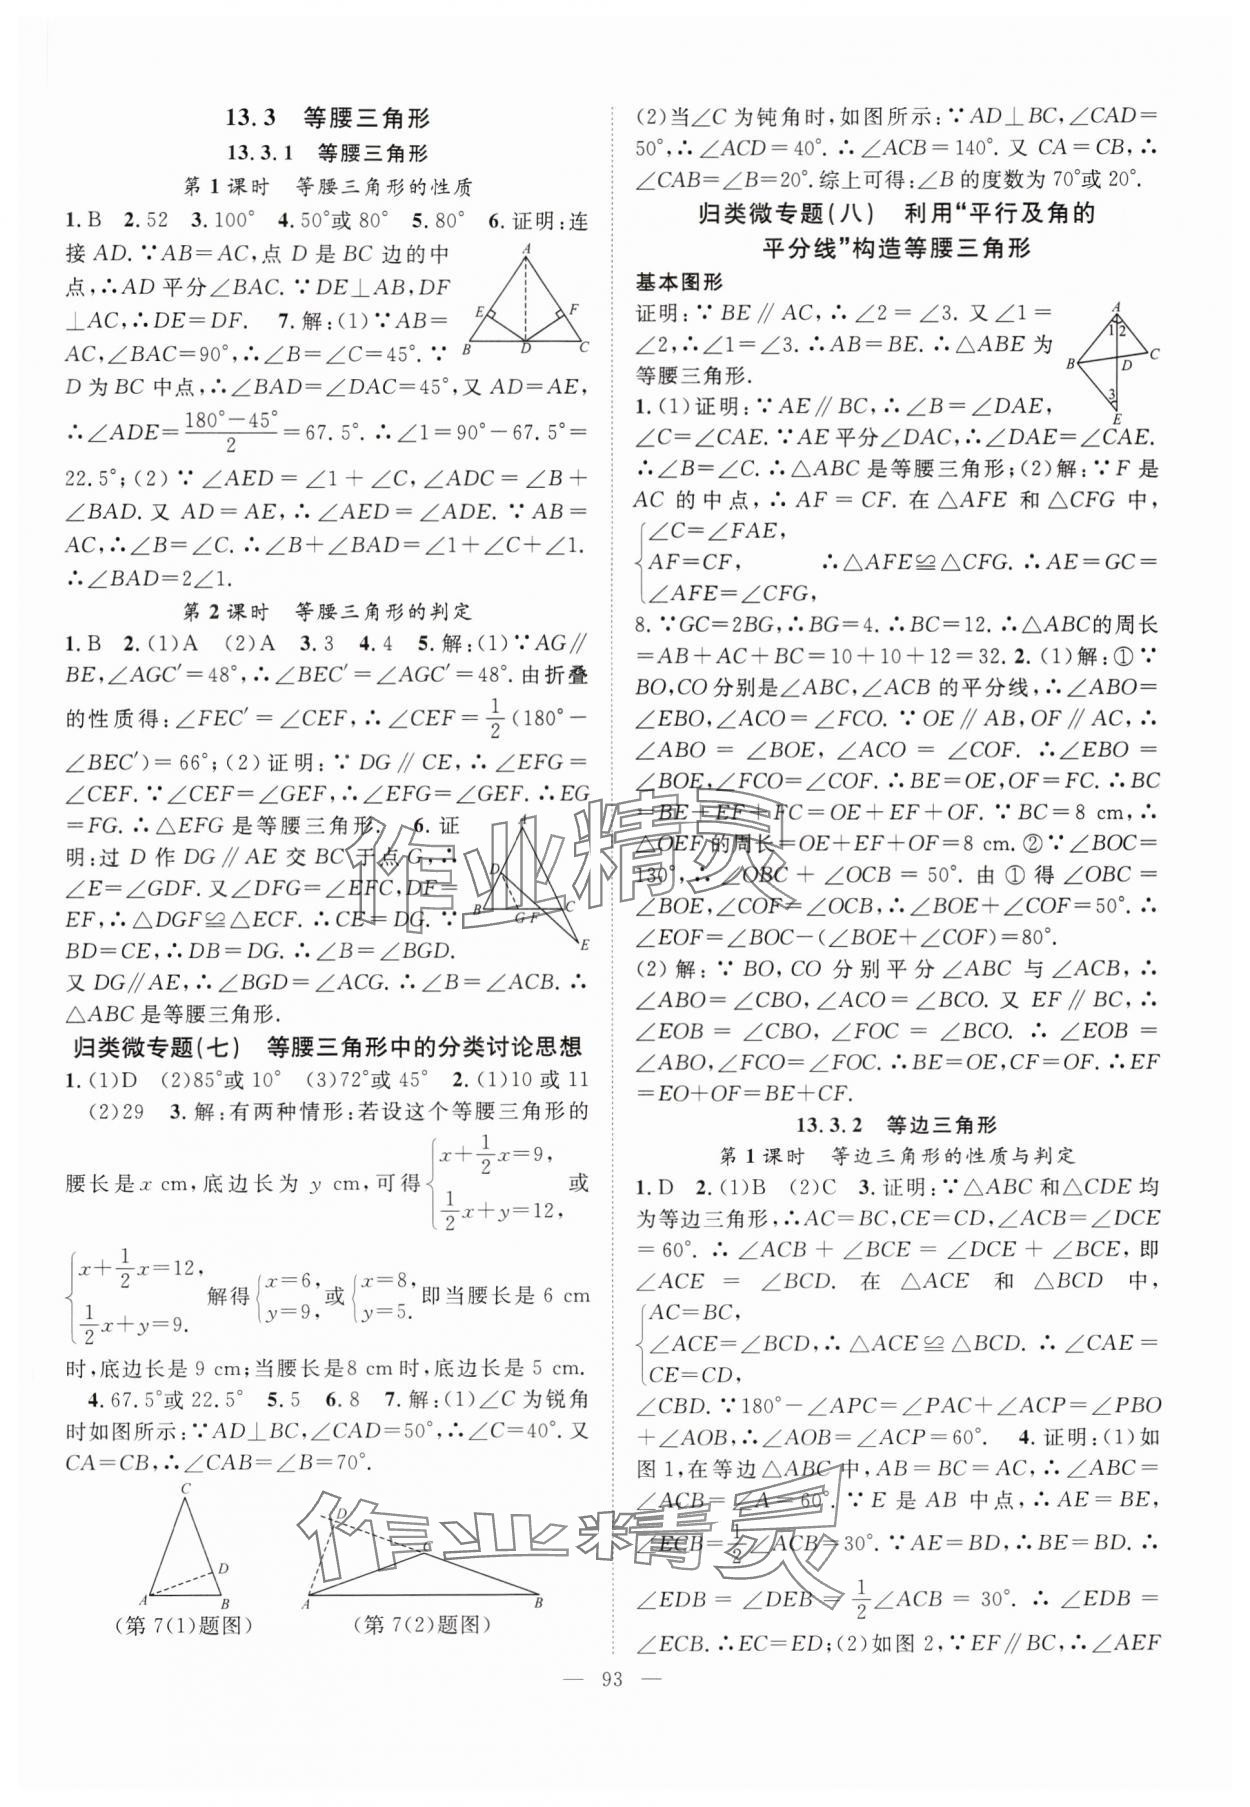 13.3 等腰三角形
13.3.1 等腰三角形
第1课时 等腰三角形的性质
1.B 2.52 3.100° 4.50°或80° 5.80° 6.证明:连
接AD.∵AB=AC,点D是BC边的中
点,∴AD平分∠BAC.∵DE⊥AB,DF
⊥AC,∴DE=DF. 7.解:(1)∵AB=
AC,∠BAC=90°,∴∠B=∠C=45°.∵
D为BC中点,∴∠BAD=∠DAC=45°,又AD=AE,
∴∠ADE=(180°-45°)/2=67.5°.∴∠1=90°-67.5°=
22.5°;(2)∵∠AED=∠1+∠C,∠ADC=∠B+
∠BAD.又AD=AE,∴∠AED=∠ADE.∵AB=
AC,∴∠B=∠C.∴∠B+∠BAD=∠1+∠C+∠1.
∴∠BAD=2∠1.
第2课时 等腰三角形的判定
1.B 2.(1)A (2)A 3.3 4.4 5.解:(1)∵AG∥
BE,∠AGC′=48°,∴∠BEC′=∠AGC′=48°.由折叠
的性质得:∠FEC′=∠CEF,∴∠CEF=1/2(180°-
∠BEC′)=66°;(2)证明:∵DG∥CE,∴∠EFG=
∠CEF.∵∠CEF=∠GEF,∴∠EFG=∠GEF.∴EG
=FG.∴△EFG是等腰三角形. 6.证
明:过D作DG∥AE交BC于点G,∴
∠E=∠GDF.又∠DFG=∠EFC,DF=
EF,∴△DGF≌△ECF.∴CE=DG.∵
BD=CE,∴DB=DG.∴∠B=∠BGD.
又DG∥AE,∴∠BGD=∠ACG.∴∠B=∠ACB.∴
△ABC是等腰三角形.
归类微专题(七) 等腰三角形中的分类讨论思想
1.(1)D (2)85°或10° (3)72°或45° 2.(1)10或11
(2)29 3.解:有两种情形:若设这个等腰三角形的
腰长是x cm,底边长为y cm,可得{x+1/2x=9, 1/2x+y=12,或
{x+1/2x=12, 1/2x+y=9.解得{x=6, y=9,或{x=8, y=5.即当腰长是6 cm
时,底边长是9 cm;当腰长是8 cm时,底边长是5 cm.
4.67.5°或22.5° 5.5 6.8 7.解:(1)∠C为锐角
时如图所示:∵AD⊥BC,∠CAD=50°,∴∠C=40°.又
CA=CB,∴∠CAB=∠B=70°.
(第7(1)题图) (第7(2)题图)
(2)当∠C为钝角时,如图所示:∵AD⊥BC,∠CAD=
50°,∴∠ACD=40°.∴∠ACB=140°.又CA=CB,∴
∠CAB=∠B=20°.综上可得:∠B的度数为70°或20°.
归类微专题(八) 利用“平行及角的
平分线”构造等腰三角形
基本图形
证明:∵BE∥AC,∴∠2=∠3.又∠1=
∠2,∴∠1=∠3.∴AB=BE.∴△ABE为
等腰三角形.
1.(1)证明:∵AE∥BC,∴∠B=∠DAE,
∠C=∠CAE.∵AE平分∠DAC,∴∠DAE=∠CAE.
∴∠B=∠C.∴△ABC是等腰三角形;(2)解:∵F是
AC的中点,∴AF=CF.在△AFE和△CFG中,
∠C=∠FAE,
AF=CF, ∴△AFE≌△CFG.∴AE=GC=
∠AFE=∠CFG,
8.∵GC=2BG,∴BG=4.∴BC=12.∴△ABC的周长
=AB+AC+BC=10+10+12=32. 2.(1)解:①∵
BO,CO分别是∠ABC,∠ACB的平分线,∴∠ABO=
∠EBO,∠ACO=∠FCO.∵OE∥AB,OF∥AC,∴
∠ABO=∠BOE,∠ACO=∠COF.∴∠EBO=
∠BOE,∠FCO=∠COF.∴BE=OE,OF=FC.∴BC
=BE+EF+FC=OE+EF+OF.∵BC=8 cm,∴
△OEF的周长=OE+EF+OF=8 cm.②∵∠BOC=
130°,∴∠OBC+∠OCB=50°.由①得∠OBC=
∠BOE,∠COF=∠OCB,∴∠BOE+∠COF=50°.∴
∠EOF=∠BOC-(∠BOE+∠COF)=80°.
(2)解:∵BO,CO分别平分∠ABC与∠ACB,∴
∠ABO=∠CBO,∠ACO=∠BCO.又EF∥BC,∴
∠EOB=∠CBO,∠FOC=∠BCO.∴∠EOB=
∠ABO,∠FOC=∠FCO.∴BE=EO,CF=FO.∴EF
=EO+OF=BE+CF.
13.3.2 等边三角形
第1课时 等边三角形的性质与判定
1.D 2.(1)B (2)C 3.证明:∵△ABC和△CDE均
为等边三角形,∴AC=BC,CE=CD,∠ACB=∠DCE
=60°.∴∠ACB+∠BCE=∠DCE+∠BCE,即
∠ACE=∠BCD.在△ACE和△BCD中,
AC=BC,
∠ACE=∠BCD,∴△ACE≌△BCD.∴∠CAE=
CE=CD,
∠CBD.∵180°-∠APC=∠PAC+∠ACP=∠PBO
+∠AOB,∴∠AOB=∠ACP=60°. 4.证明:(1)如
图1,在等边△ABC中,AB=BC=AC,∴∠ABC=
∠ACB=∠A=60°.∵E是AB中点,∴AE=BE,
∠ECB=1/2∠ACB=30°.∵AE=BD,∴BE=BD.∴
∠EDB=∠DEB=1/2∠ACB=30°.∴∠EDB=
∠ECB.∴EC=ED;(2)如图2,∵EF∥BC,∴∠AEF
— 93 —
作业精灵
作业精灵